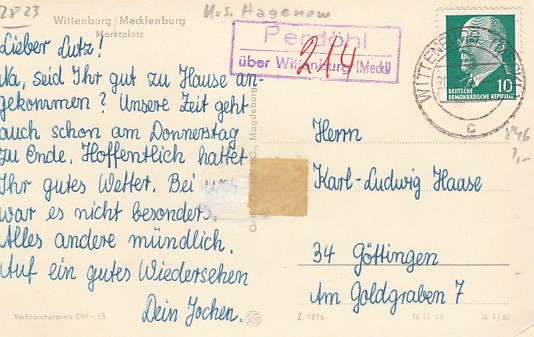 2823
Krs. Hagenow
Wittenburg/Mecklenburg
Marktplatz
Perdöhl
über Wittenburg (Meckl)
214
10
DEUTSCHE
DEMOKRATISCHE REPUBLIK
WITTENBURG (MECKL)
c
Lieber Lutz!
Na, seid Ihr gut zu Hause an-
gekommen? Unsere Zeit geht
auch schon am Donnerstag
zu Ende. Hoffentlich hattet
Ihr gutes Wetter. Bei uns
war es nicht besonders.
Alles andere mündlich.
Auf ein gutes Wiedersehen
Dein Jochen.
Magdeburg
Herrn
Karl-Ludwig Haase
34 Göttingen
Am Goldgraben 7
Verbraucherpreis DM -.15
Z 1876
N 1/60